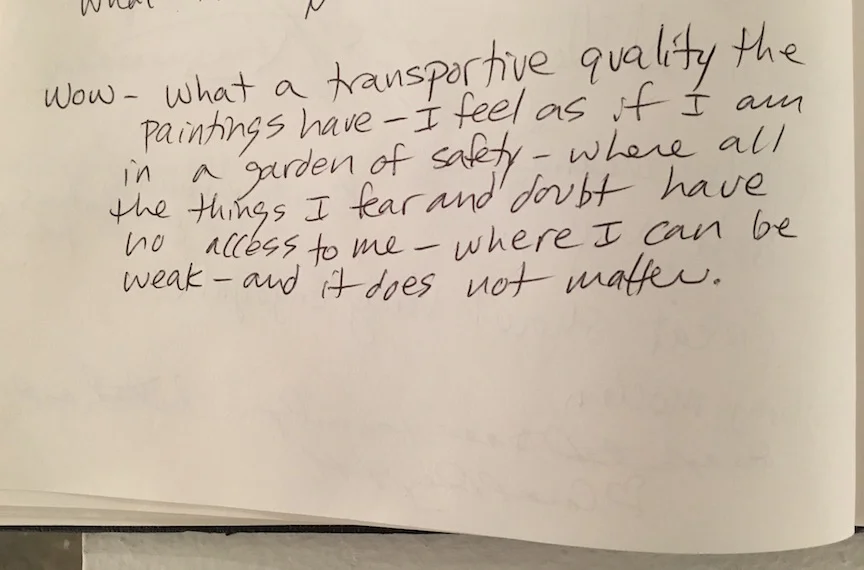 what
Wow - what a transportive quality the
paintings have - I feel as if I am
in a garden of safety - where all
the things I fear and doubt have
no access to me - where I can be
weak - and it does not matter.